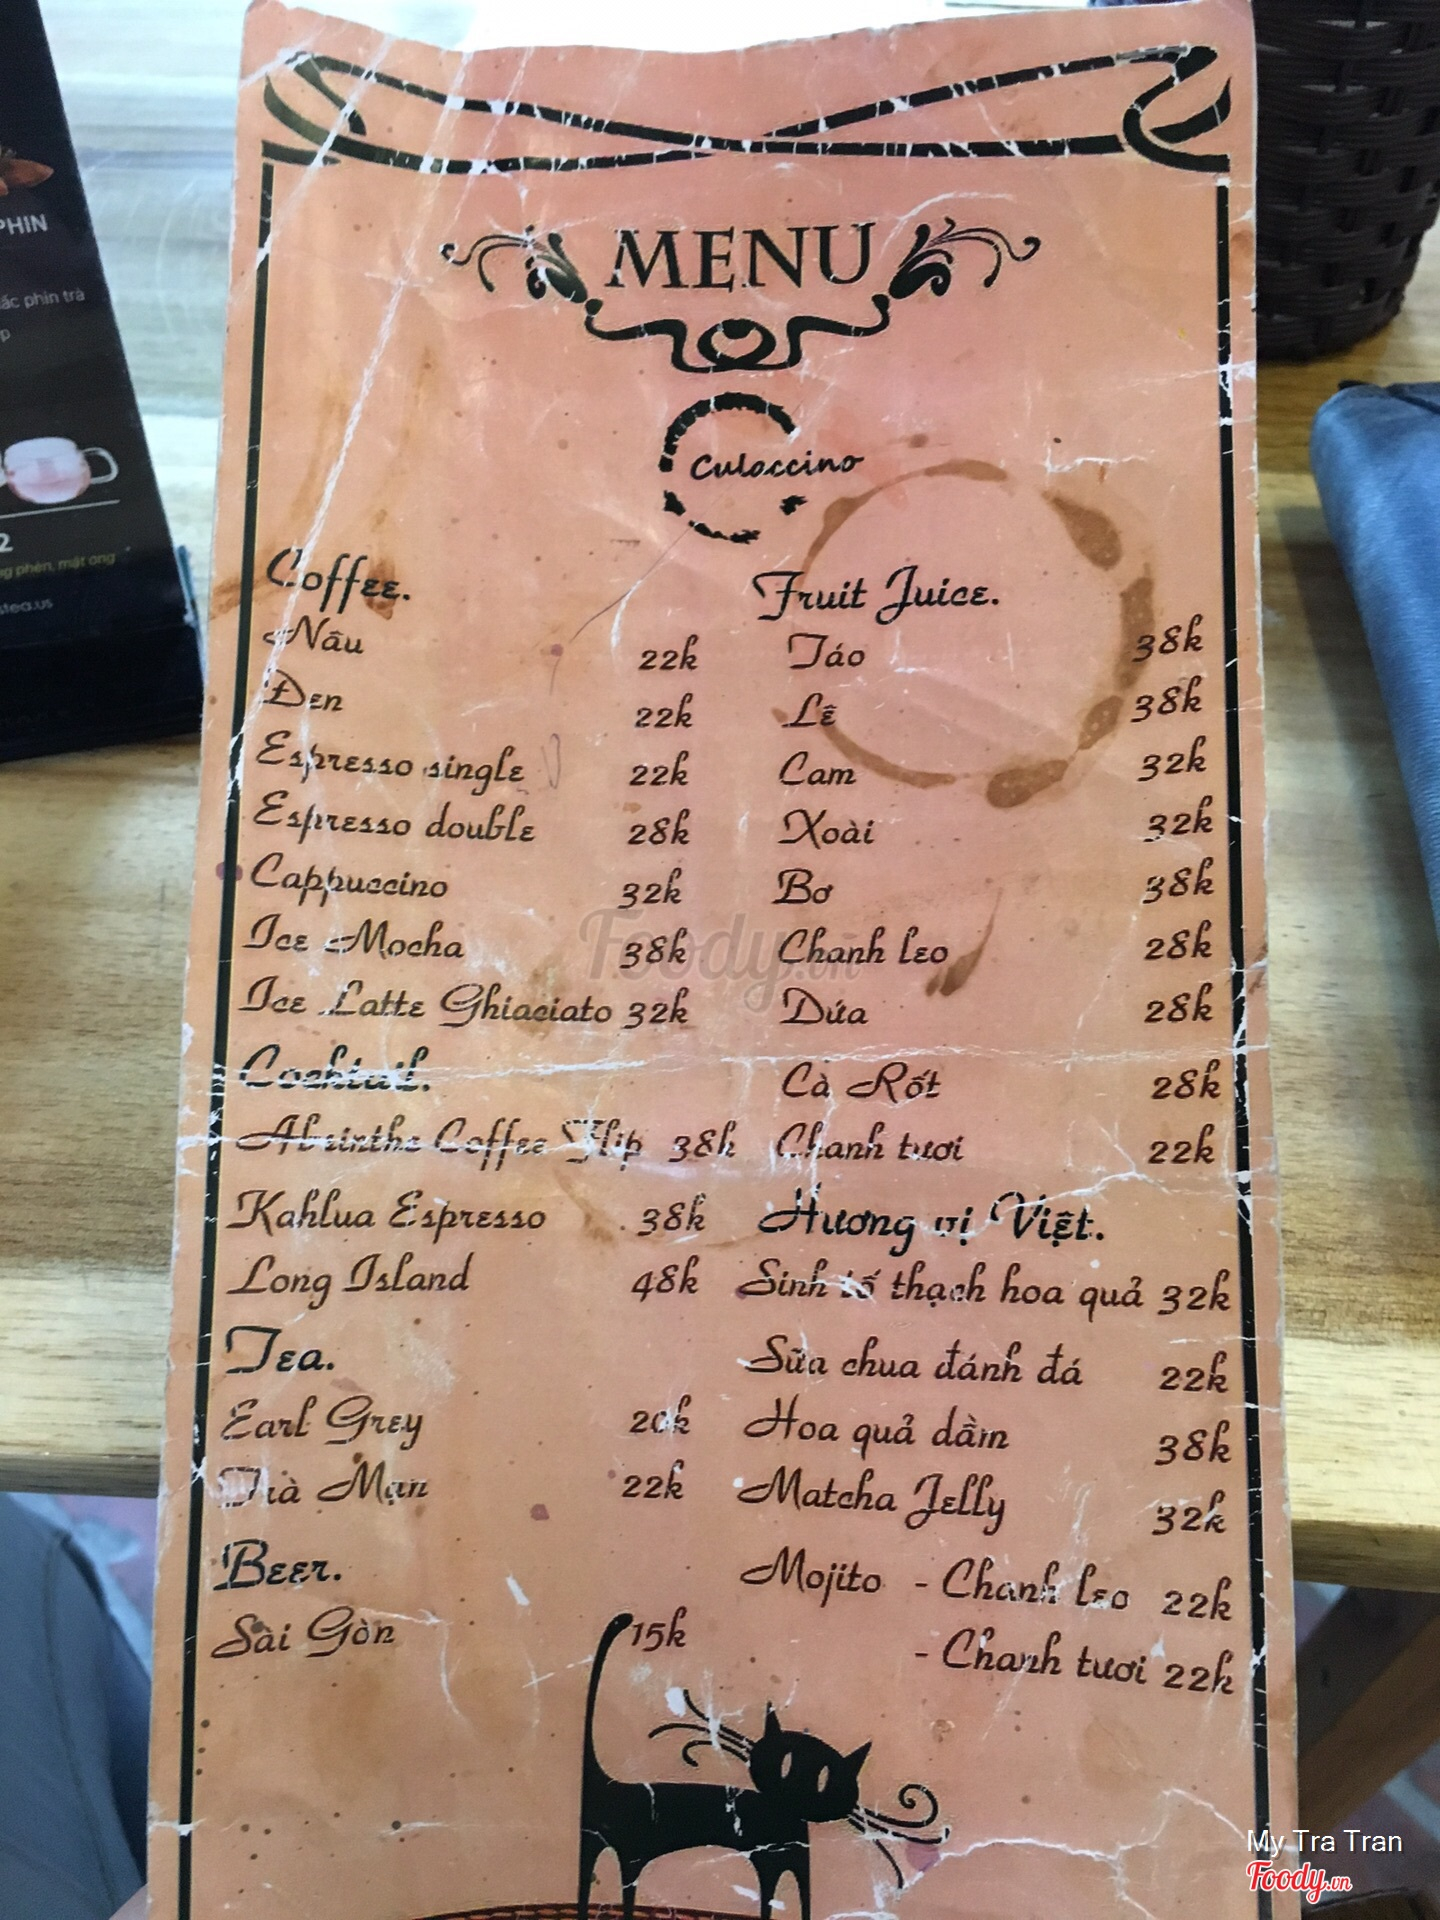 MENU
Culaccino
Coffee.
Nâu 22k
Đen 22k
Espresso single 22k
Espresso double 28k
Cappuccino 32k
Ice Mocha 38k
Ice Latte Ghiaciato 32k
Cocktail.
Absinthe Coffee Flip 38k
Kahlua Espresso 38k
Long Island 48k
Tea.
Earl Grey 20k
Trà Mạn 22k
Beer.
Sài Gòn 15k
Fruit Juice.
Táo 38k
Lê 38k
Cam 32k
Xoài 32k
Bơ 38k
Chanh leo 28k
Dứa 28k
Cà Rốt 28k
Chanh tươi 22k
Hương vị Việt.
Sinh tố thạch hoa quả 32k
Sữa chua đánh đá 22k
Hoa quả dầm 38k
Matcha Jelly 32k
Mojito - Chanh leo 22k
- Chanh tươi 22k
PHIN
phin trà
2
phèn, mật ong
Foody.vn
My Tra Tran
Foody.vn